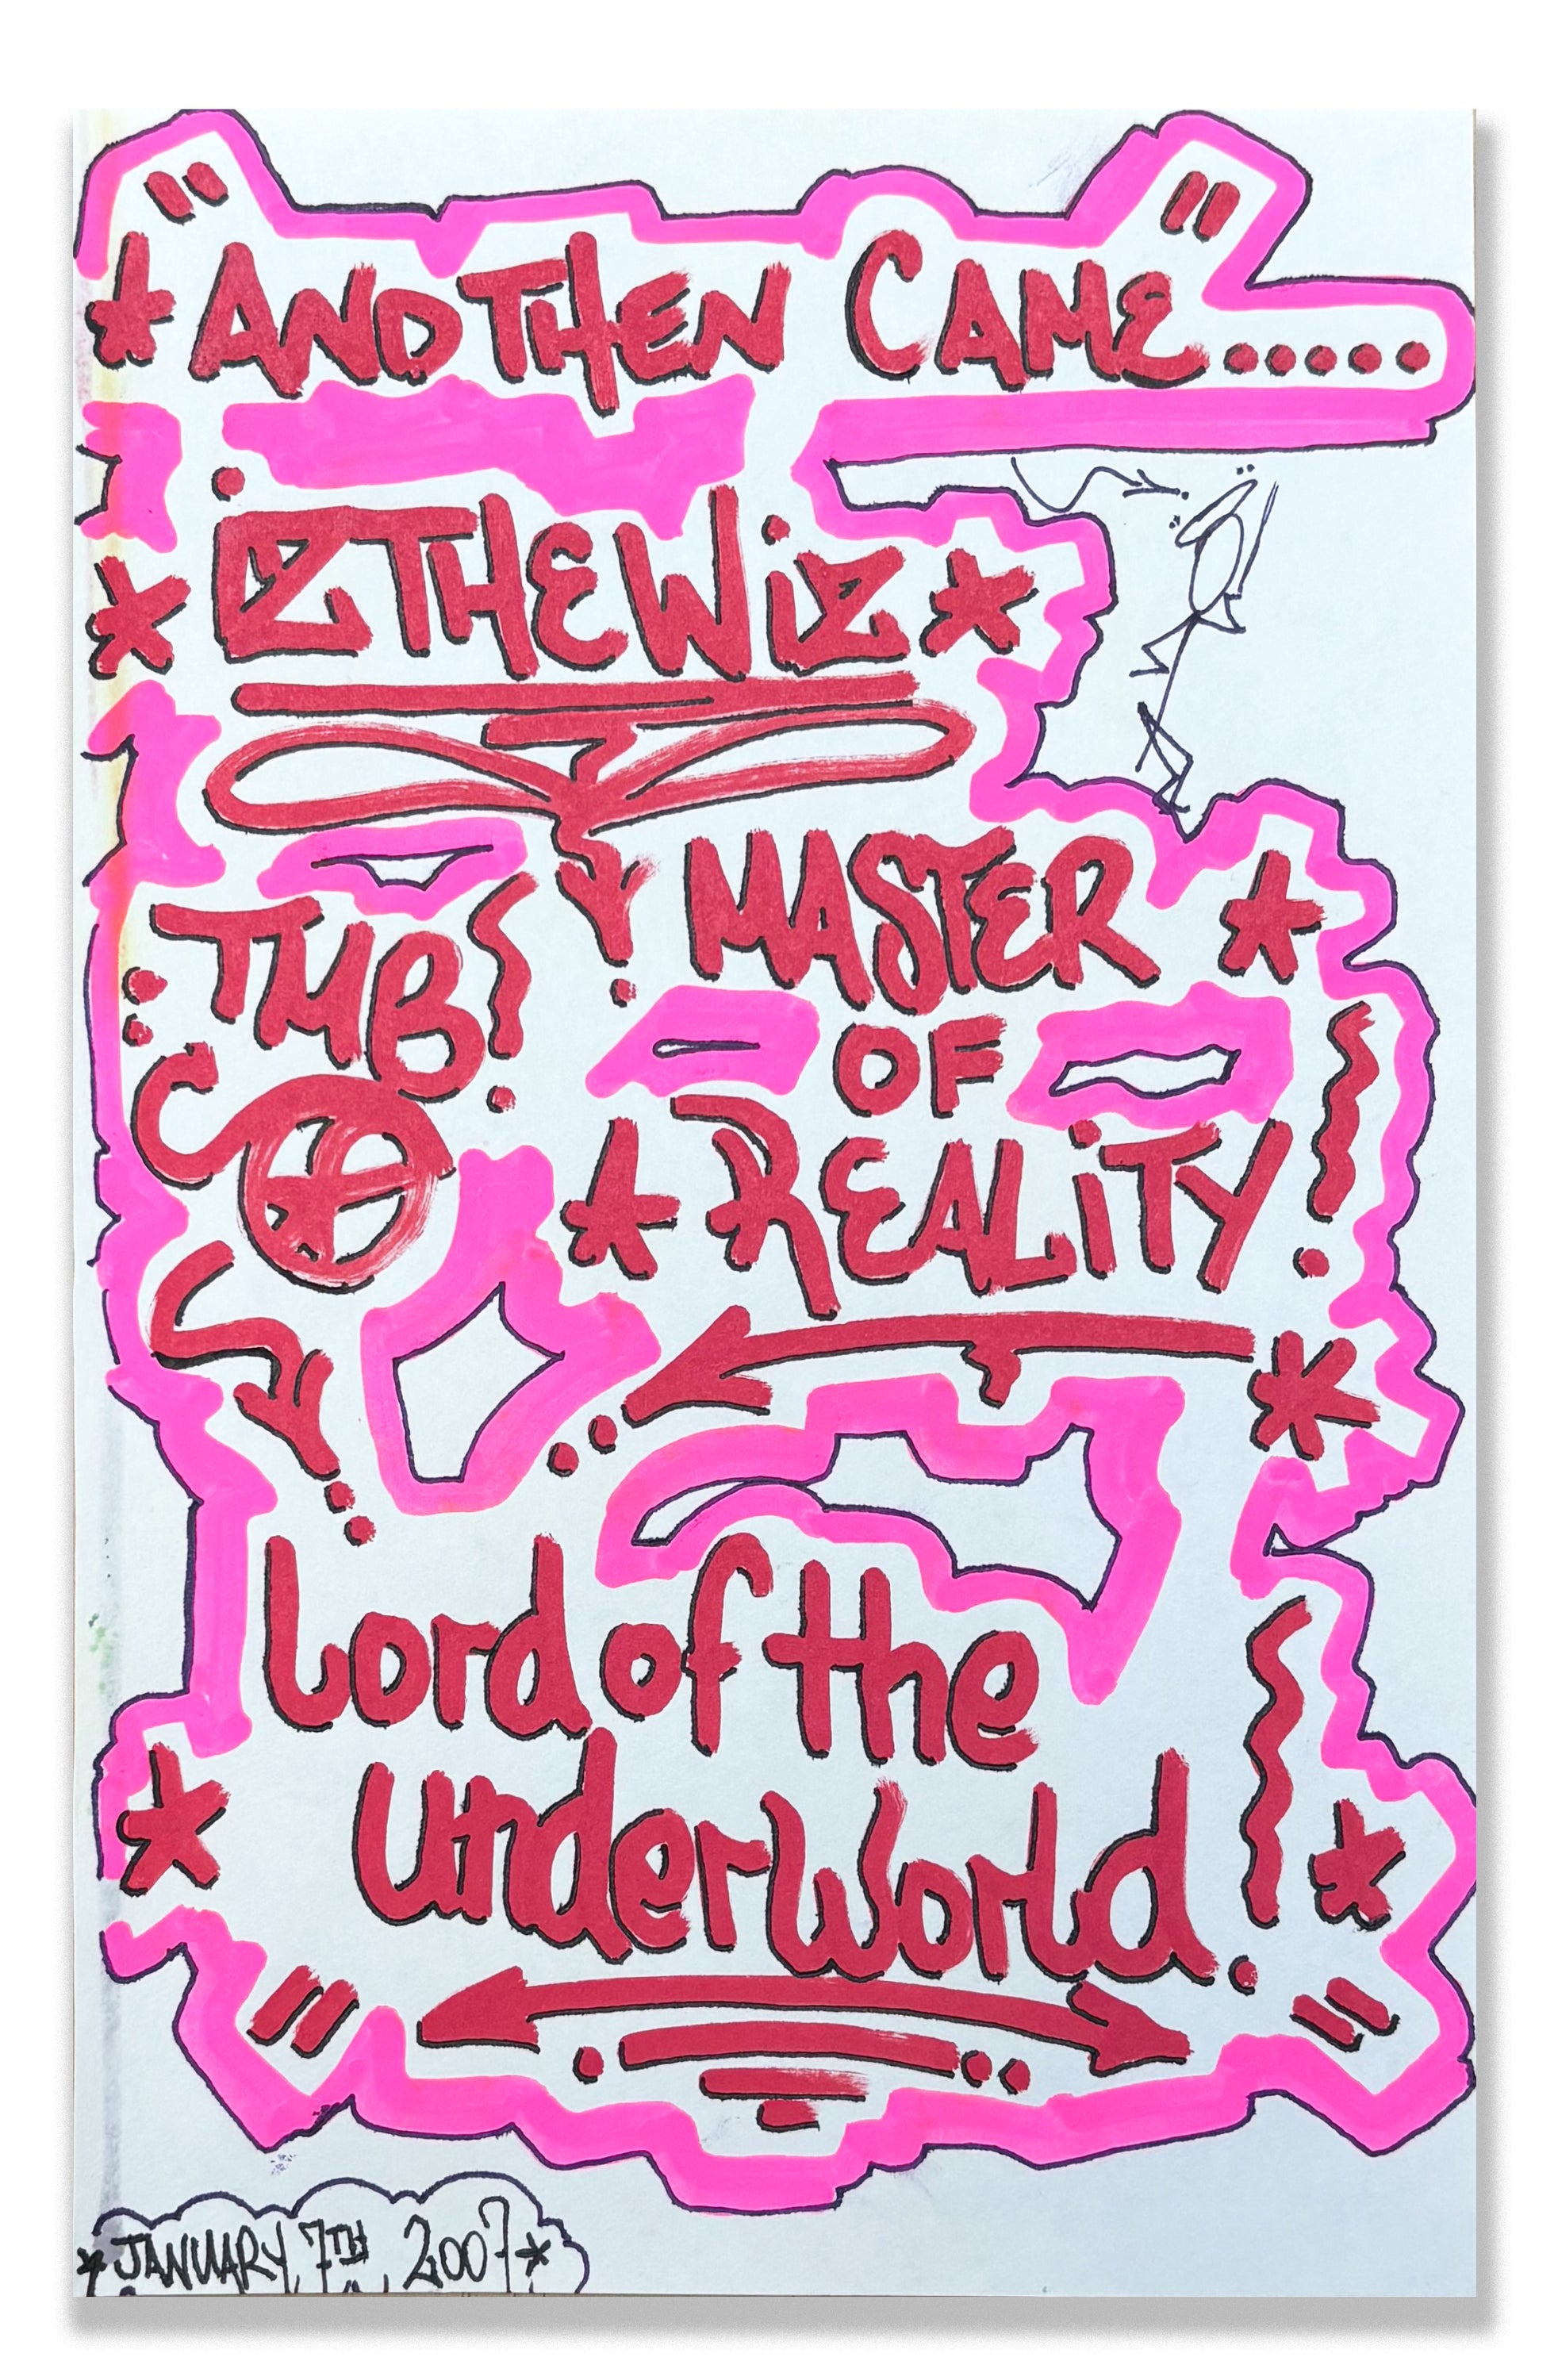 "AND THEN CAME....."
IZ THE WIZ
TMB
MASTER
OF
REALITY
Lord of the
underworld.
JANUARY 7TH, 2007